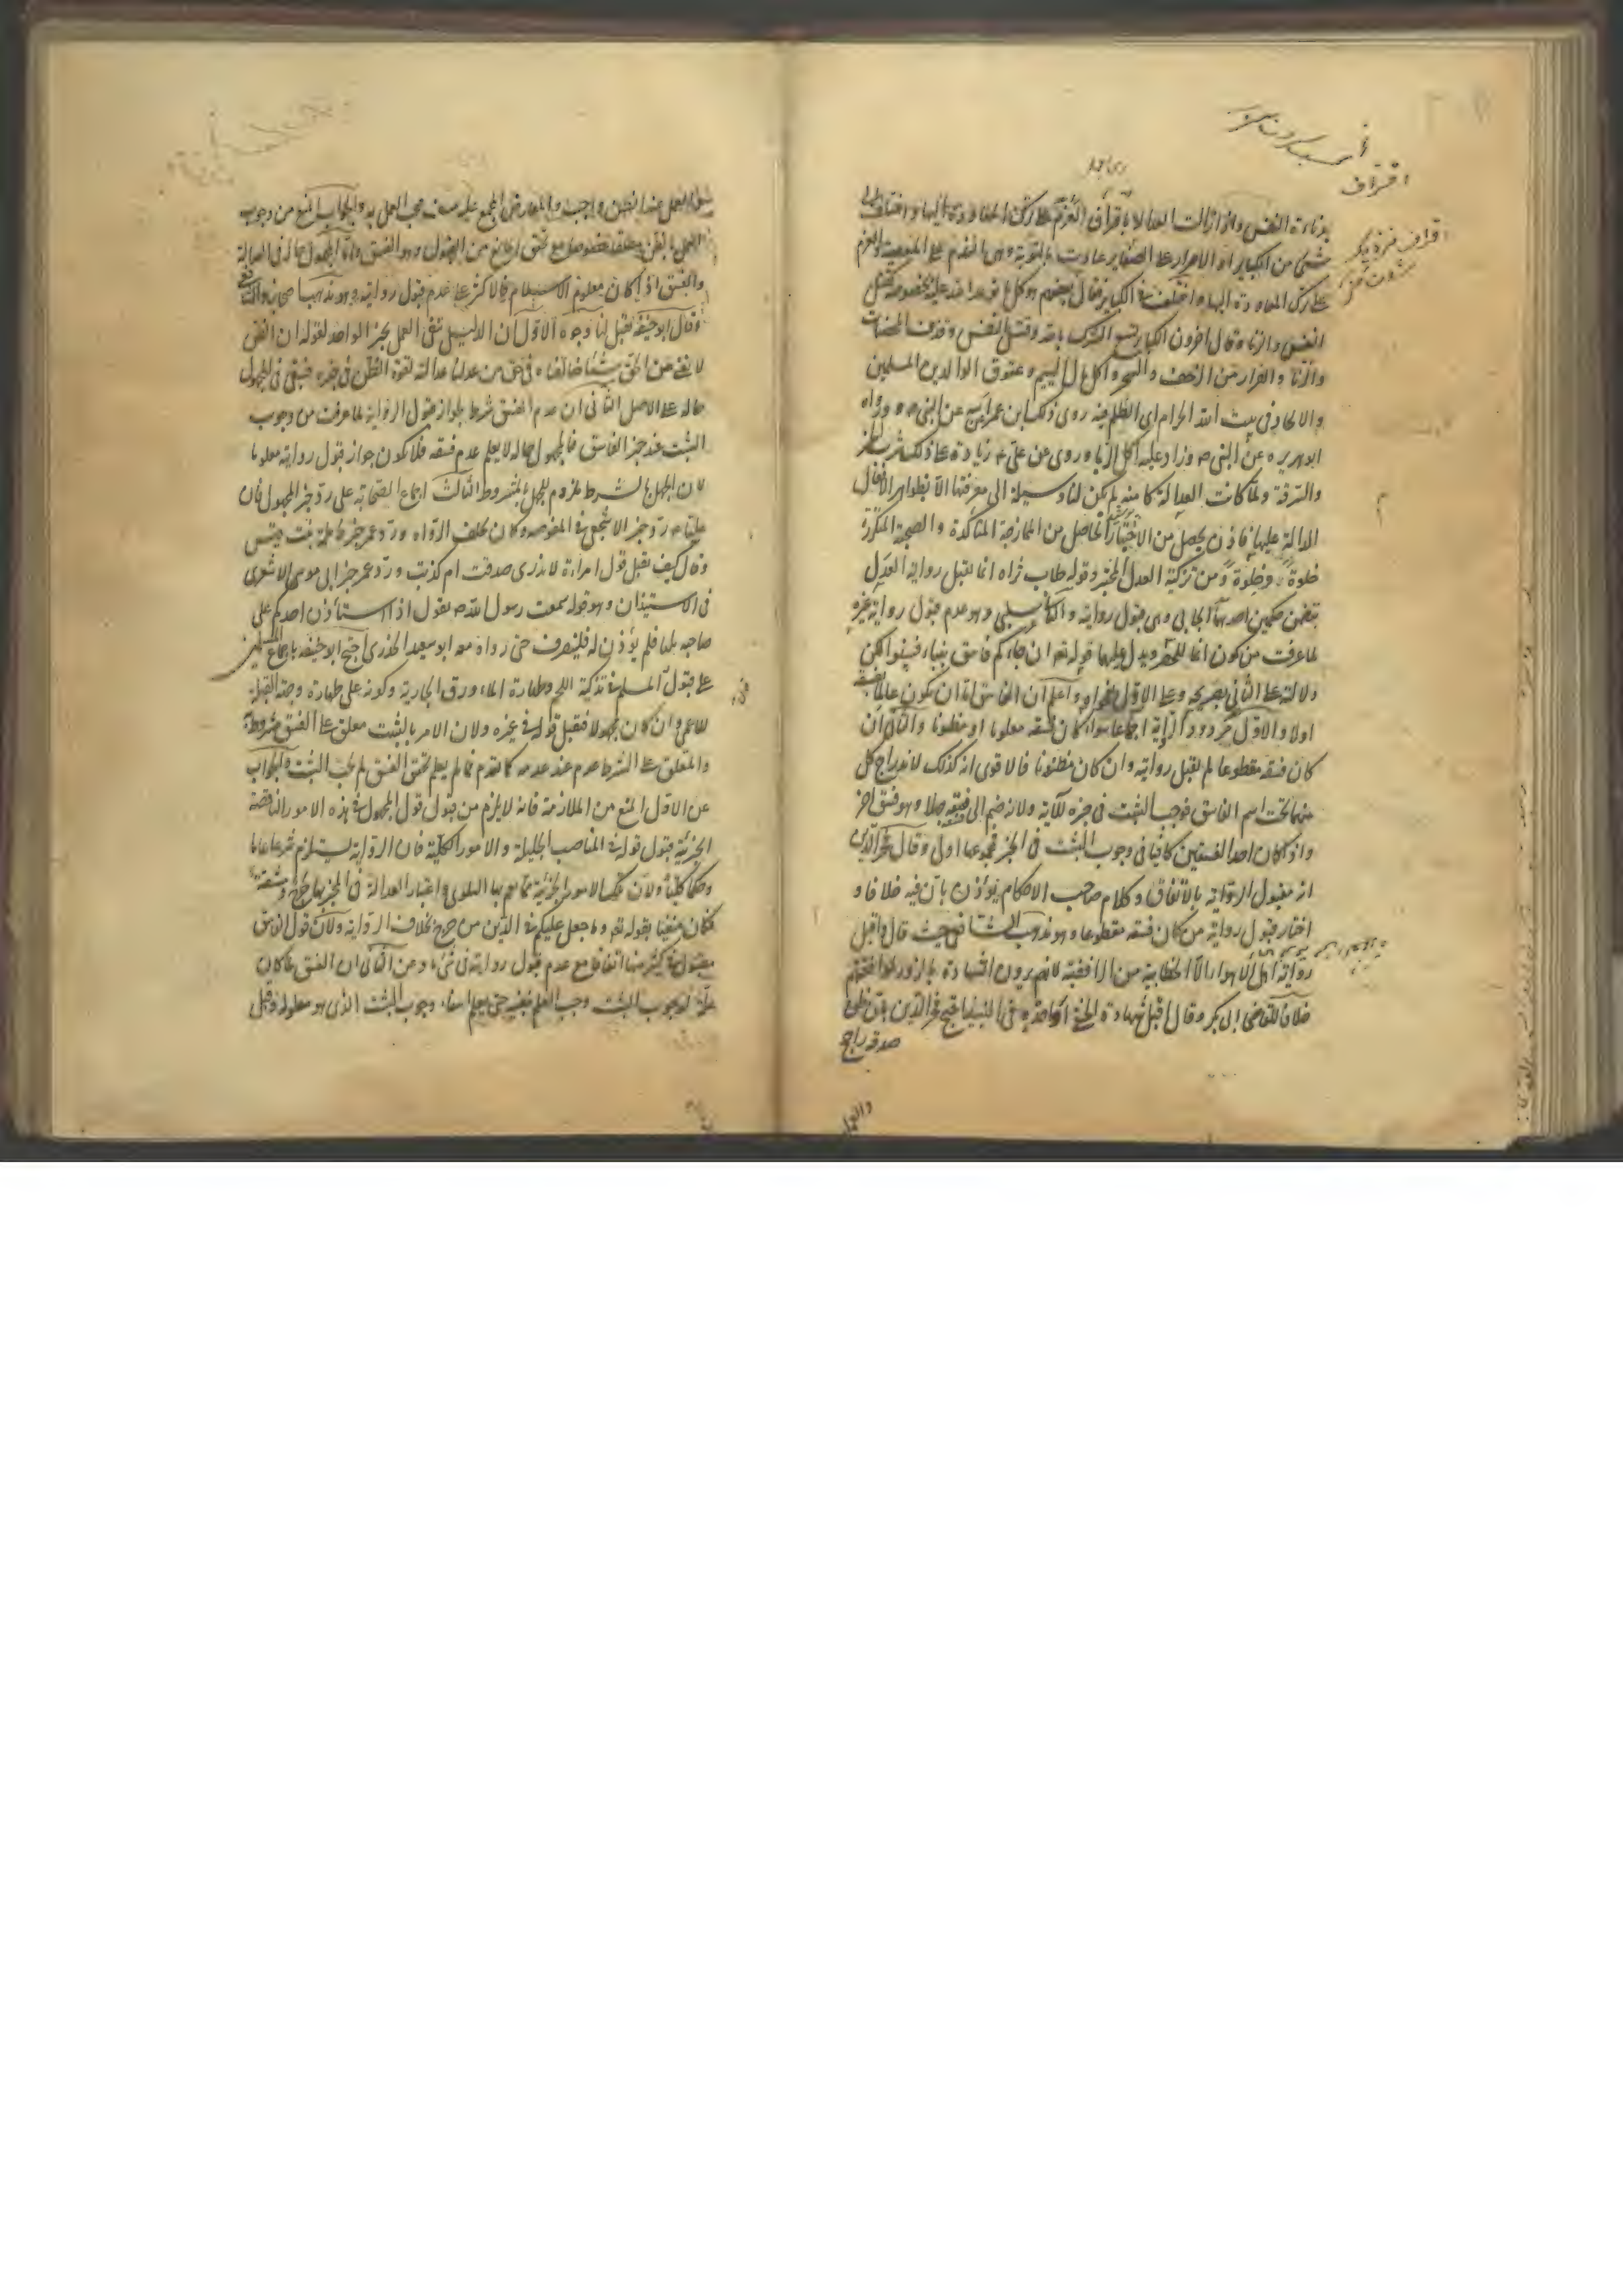 بدناءة النفس واذا زالت العدالة باقتراف
شئ من الكباير او الاصرار على الصغاير عادت بالتوبة وهى الندم على المعصية والعزم
على ترك المعاودة اليها واختلف فى الكباير فقال بعضهم هو كل توعد الله عليه بخصوصه كقتل
النفس والزنا وقال اخرون الكباير تسع الشرك بالله وقتل النفس وقذف المحصنات
والزنا والفرار من الزحف والسحر واكل مال اليتيم وعقوق الوالدين المسلمين
والالحاد فى بيت الله الحرام اى الظلم فيه روى ذلك ابن عمر عن ابيه عن النبى ص ورواه
ابو هريرة عن النبى ص وزاد عليه اكل الربا وروى عن على ع زيادة على ذلك شرب الخمر
والسرقة ولما كانت العدالة كامنة لم يكن لنا وسيلة الى معرفتها الا بظواهر الافعال
الدالة عليها فاذن يحصل من الاختبار الحاصل من الممازجة المتأكدة والصحبة المتكررة
خلوة وخلوة ومن تزكية العدل المخبر وقوله طاب ثراه انما يقبل رواية العدل
يتضمن حكمين احدهما ايجابى وهى قبول روايته والثانى سلبى وهو عدم قبول رواية غيره
لما عرفت من كون انما للحصر ويدل عليهما قوله تع ان جاءكم فاسق بنباء فتبينوا لكن
دلالته على الثانى بصريحه وعلى الاول بفحواه واعلم ان الفاسق اما ان يكون عالما بفسقه
اولا والاول مردود الرواية اجماعا سواء كان فسقه معلوما او مظنونا والثانى ان
كان فسقه مقطوعا لم يقبل روايته وان كان مظنونا فالاقوى انه كذلك لاندراج كل
منهما تحت اسم الفاسق فوجب التثبت فى خبره للآية ولانه ضم الى فسقه جهلا وهو فسق اخر
واذا كان احد الفسقين كافيا فى وجوب التثبت فى الخبر فمجموعهما اولى وقال فخر الدين
انه مقبول الرواية بالاتفاق وكلام صاحب الاحكام يؤذن بان فيه خلافا و
اختار قبول رواية من كان فسقه مقطوعا وهو مذهب الشافعى حيث قال واقبل
رواية اهل الاهواء الا الخطابية من الرافضة لانهم يرون الشهادة بالزور لموافقتهم
خلافا للقاضى ابى بكر وقال اقبل شهادة الحنفى
صدقه راجح
العمل بهذا الظن واجب والمعارض المجمع عليه منتف فيجب العمل به والجواب المنع من وجوب
العمل بالظن مطلقا خصوصا مع تحقق المانع من القبول وهو الفسق واما المجهول حاله فى العدالة
والفسق اذا كان معلوم الاسلام فالاكثر على عدم قبول روايته وهو مذهب اصحابنا والشافعى
وقال ابو حنيفة تقبل لنا وجوه الاول ان الدليل نفى العمل بخبر الواحد لقوله ان الظن
لا يغنى من الحق شيئا خالفناه فى حق من علمنا عدالته لقوة الظن فى خبره فيبقى فى المجهول
حاله على الاصل الثانى ان عدم الفسق شرط لجواز قبول الرواية لما عرفت من وجوب
التثبت عند خبر الفاسق فالمجهول حاله لا يعلم عدم فسقه فلا يكون جواز قبول روايته معلوما
لان الجهل بالشرط ملزوم للجهل بالمشروط الثالث اجماع الصحابة على رد خبر المجهول فان
عليا ع رد خبر الاشجعى فى المفوضة وكان يحلف الرواة ورد عمر خبر فاطمة بنت قيس
وقال كيف نقبل قول امراءة لا ندرى صدقت ام كذبت ورد عمر خبر ابى موسى الاشعرى
فى الاستيذان وهو قوله سمعت رسول الله ص يقول اذا استأذن احدكم على
صاحبه ثلثا فلم يؤذن له فلينصرف حتى رواه معه ابو سعيد الخدرى احتج ابو حنيفة باجماع المسلمين
على قبول المسلم فى تذكية اللحم وطهارة الماء ورق الجارية وكونه على طهارة وجهة القبلة
للاعمى وان كان مجهولا فقبل قوله فى غيره ولان الامر بالتثبت معلق على الفسق مشروط به
والمعلق على الشرط عدم عند عدمه كما تقدم فما لم يعلم تحقق الفسق لم يجب التثبت والجواب
عن الاول المنع من الملازمة فانه لا يلزم من قبول قول المجهول فى هذه الامور الناقصة
الجزئية قبول قوله فى المناصب الجليلة والامور الكلية فان الرواية يستلزم شرعا عاما
وحكما كليا ولان تلك الامور الجزئية مما يعم بها البلوى واعتبار العدالة فى المخبر بها حرج ومشقة
فكان منفيا بقوله تع وما جعل عليكم فى الدين من حرج بخلاف الرواية ولان قول الفاسق
مقبول فى كثير منها اتفاقا مع عدم قبول روايته فى شئ ومن الثانى ان الفسق لما كان
علة لوجوب التثبت وجب العلم بنفيه حتى يعلم انتفاء وجوب التثبت الذى هو معلوله وقبل